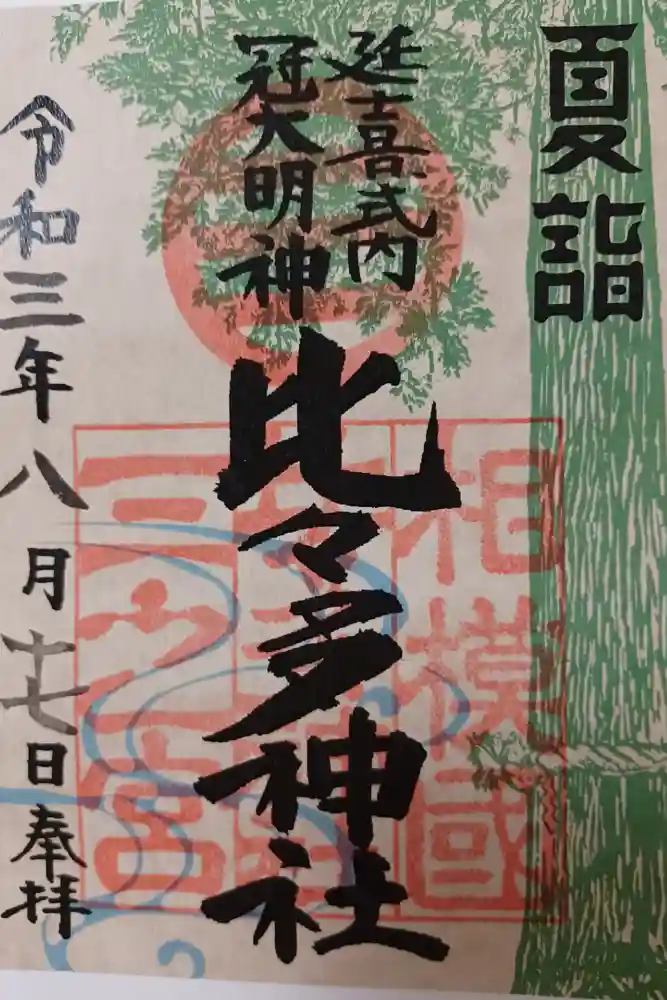 夏詣
延喜式内
冠大明神
比々多神社
相模國
三之宮
令和三年八月十七日奉拝